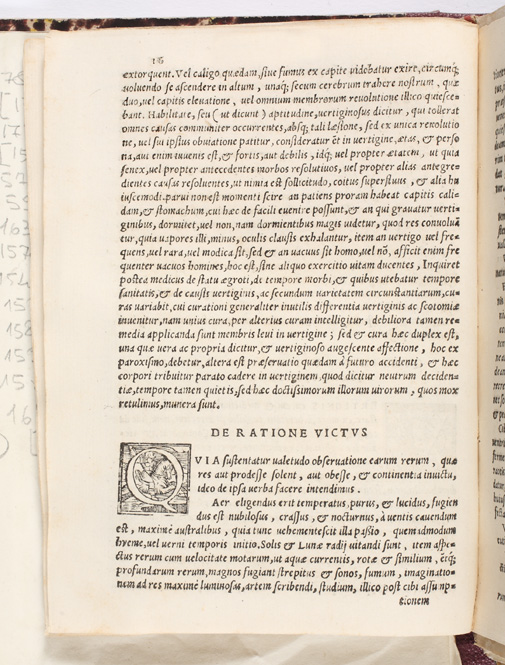 16
extorquent. Vel caligo quædam, siue fumus ex capite videbatur exire, circumq;
uoluendo se ascendere in altum, unaq; secum cerebrum trahere nostrum, quæ
duo, uel capitis eleuatione, uel omnium membrorum reuolutione illico quiesce-
bant. Habilitate, seu (ut dicunt) aptitudine, uertiginosus dicitur, qui tollerat
omnes causas communiter occurrentes, absq; tali læsione, sed ex unica reuolutio
ne, uel sui ipsius obuiatione patitur, consideratur ẽt in uertigine, ætas, & perso
na, aut enim iuuenis est, & fortis, aut debilis, idq; uel propter ætatem, ut quia
senex, uel propter antecedentes morbos resolutiuos, uel propter alias antegre-
dientes causas resoluentes, ut nimia est sollicitudo, coitus superfluus, & alia hu
iuscemodi. parui non est momenti scire an patiens pronam habeat capitis cali-
dam, & stomachum, cui hæc de facili euenire possunt, & an qui grauatur uerti-
ginibus, dormitet, uel non, nam dormientibus magis uidetur, quod res conuoluã
tur, quia uapores illi, minus, oculis clausis exhalantur, item an uertigo uel fre-
quens, uel rara, uel modica sit, sed & an uacuus sit homo, uel nõ, afficit enim fre
quenter uacuos homines, hoc est, sine aliquo exercitio uitam ducentes, Inquiret
postea medicus de statu ægroti, de tempore morbi, & quibus utebatur tempore
sanitatis, & de causis uertiginis, ac secundum uarietatem circunstantiarum, cu-
ras uariabit, cui curationi generaliter inutilis differentia uertiginis ac scotomiæ
inuenitur, nam unius cura, per alterius curam intelligitur, debiliora tamen re-
media applicanda sunt membris leui in uertigine; sed & cura hæc duplex est,
una quæ uera ac propria dicitur, & uertiginoso augescente affectione, hoc ex
paroxismo, debetur, altera est præseruatio quædam à futuro accidenti, & hæc
corpori tribuitur parato cadere in uertiginem, quod dicitur neutrum deciden-
tiæ, tempore tamen quietis, sed hæc doctissimorum illorum uirorum, quos mox
retulinus, munera sunt.
DE RATIONE VICTVS
QVIA sustentatur ualetudo obseruatione earum rerum, quæ
res aut prodesse solent, aut obesse, & continentia inuicta,
ideo de ipsa uerba facere intendimus.
Aer eligendus erit temperatus, purus, & lucidus, fugien
dus est nubilosus, crassus, & nocturnus, à uentis cauendum
est, maximè australibus, quia tunc uehementescit illa passio, quem admodum
hyeme, uel uerni temporis initio. Solis & Lunæ radij uitandi sunt, item aspe-
ctus rerum cum uelocitate motarum, ut aquæ currentis, rotæ & similium, eisq;
profundarum rerum, magnos fugiant strepitus & sonos, fumum, imaginatio-
nem ad res maximè luminosas, artem scribendi, studium, illico post cibi assump-
tionem